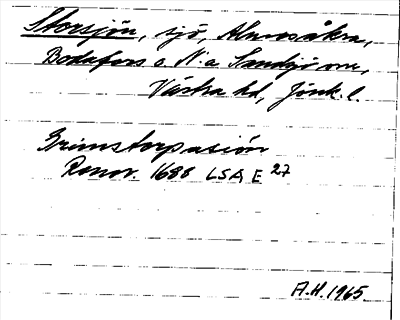 Storsjön, sjö, Almesåkra,
Bodafors o. N:a Sandsjö snr,
Västra hd, Jönk. l.
Grimstorpasiön
Renov. 1688 LSA E 27
A.H. 1965